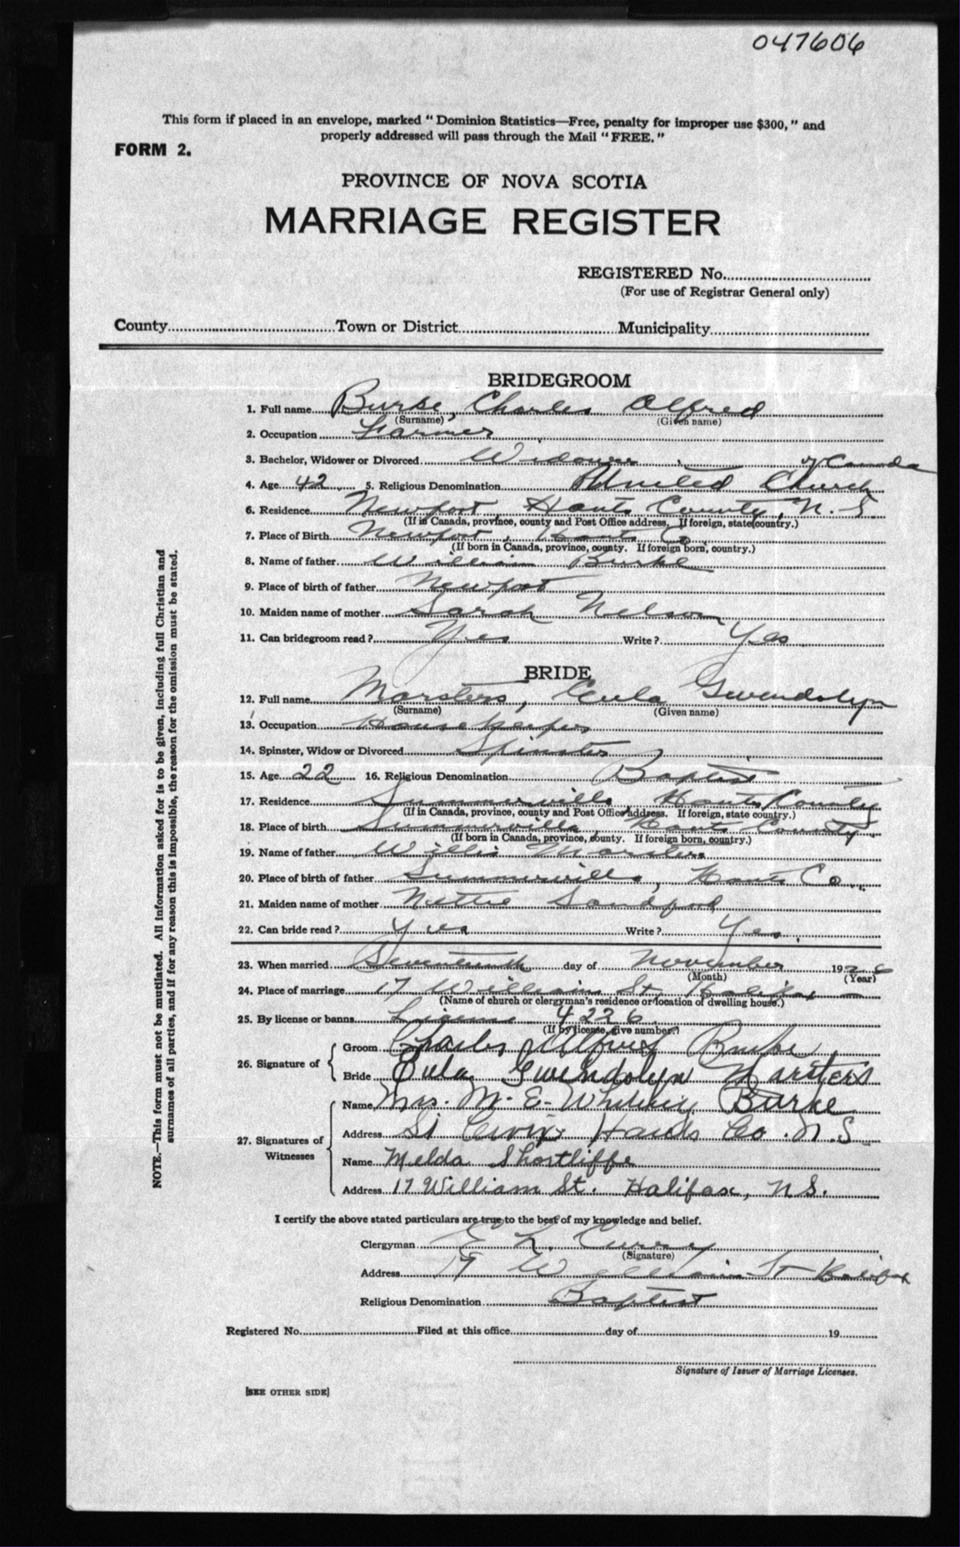 047606
This form if placed in an envelope, marked "Dominion Statistics—Free, penalty for improper use $300," and
properly addressed will pass through the Mail "FREE."
FORM 2.
PROVINCE OF NOVA SCOTIA
MARRIAGE REGISTER
REGISTERED No.
(For use of Registrar General only)
County Town or District Municipality
BRIDEGROOM
1. Full name Burke, Charles Alfred
(Surname) (Given name)
2. Occupation Farmer
3. Bachelor, Widower or Divorced Widower of Canada
4. Age 42 5. Religious Denomination United Church
6. Residence Newport, Hants County, N. S.
(If in Canada, province, county and Post Office address. If foreign, state country.)
7. Place of Birth Newport, Hants Co
(If born in Canada, province, county. If foreign born, country.)
8. Name of father William Burke
9. Place of birth of father Newport
10. Maiden name of mother Sarah Nelson
11. Can bridegroom read? Yes Write? Yes
BRIDE
12. Full name Marsters, Eula Gwendolyn
(Surname) (Given name)
13. Occupation Housekeeper
14. Spinster, Widow or Divorced Spinster
15. Age 22 16. Religious Denomination Baptist
17. Residence Summerville Hants County
(If in Canada, province, county and Post Office address. If foreign, state country.)
18. Place of birth Summerville Hants County
(If born in Canada, province, county. If foreign born, country.)
19. Name of father Willis Marsters
20. Place of birth of father Summerville, Hants Co.
21. Maiden name of mother Nettie Sandford
22. Can bride read? Yes Write? Yes
23. When married Seventeenth day of November 1926
(Month) (Year)
24. Place of marriage 17 William St. Halifax
(Name of church or clergyman's residence or location of dwelling house.)
25. By license or banns License 4226
(If by license, give number)
26. Signature of
Groom Charles Alfred Burke
Bride Eula Gwendolyn Marsters
27. Signatures of Witnesses
Name Mrs. M. E. Burke
Address St Croix Hants Co. N. S.
Name Melda Shortliffe
Address 17 William St. Halifax, N.S.
I certify the above stated particulars are true to the best of my knowledge and belief.
Clergyman E L. Curry
(Signature)
Address William St Halifax
Religious Denomination Baptist
Registered No. Filed at this office day of 19
Signature of Issuer of Marriage Licenses.
[SEE OTHER SIDE]
NOTE.—This form must not be mutilated. All information asked for is to be given, including full Christian and
surnames of all parties, and if for any reason this is impossible, the reason for the omission must be stated.